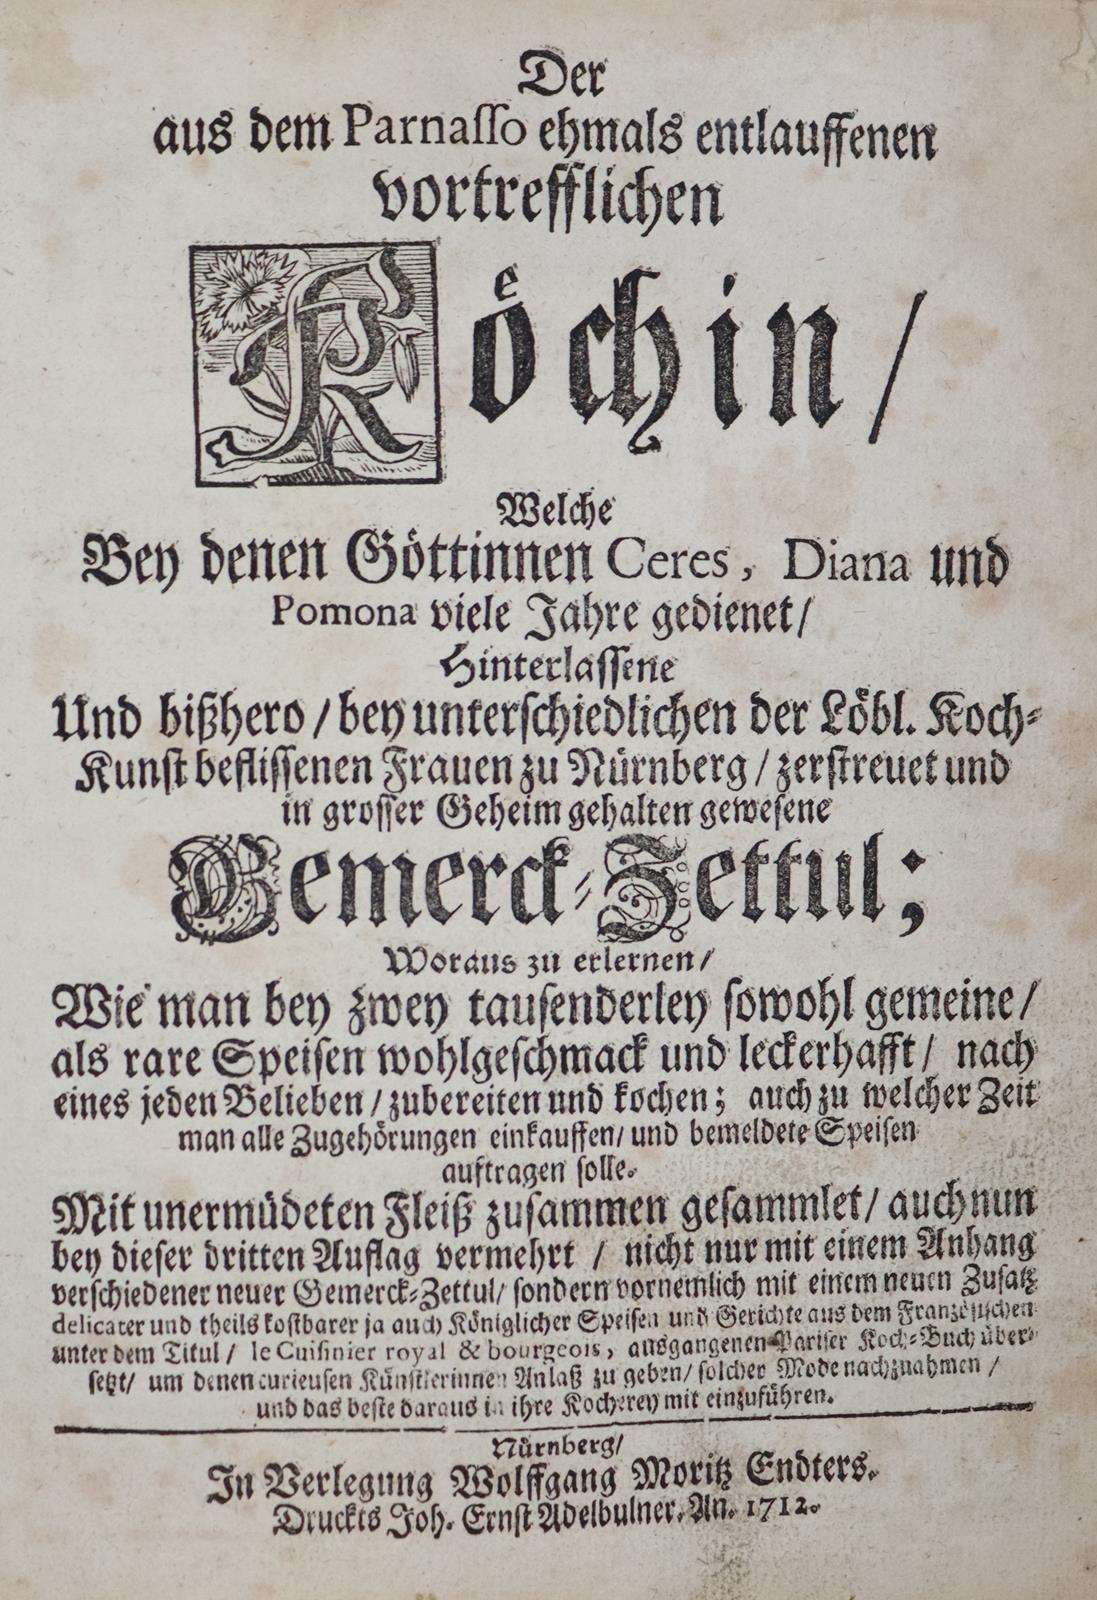 Der
aus dem Parnaſſo ehmals entlauffenen
vortrefflichen
Koͤchin/
Welche
Bey denen Göttinnen Ceres, Diana und
Pomona viele Jahre gedienet/
Hinterlaſſene
Und bißhero/ bey unterſchiedlichen der Löbl. Koch-
Kunſt befliſſenen Frauen zu Nürnberg/ zerſtreuet und
in groſſer Geheim gehalten geweſene
Gemerck-Zettul;
Woraus zu erlernen/
Wie man bey zwey tauſenderley ſowohl gemeine/
als rare Speiſen wohlgeſchmack und leckerhafft/ nach
eines jeden Belieben/ zubereiten und kochen; auch zu welcher Zeit
man alle Zugehörungen einkauffen/ und bemeldete Speiſen
auftragen ſolle.
Mit unermüdeten Fleiß zuſammen geſammlet/ auch nun
bey dieſer dritten Auflag vermehrt / nicht nur mit einem Anhang
verſchiedener neuer Gemerck-Zettul/ ſondern vornemlich mit einem neuen Zuſatz
delicater und theils koſtbarer ja auch Königlicher Speiſen und Gerichte aus dem Franzöſiſchen
unter dem Titul/ le Cuiſinier royal & bourgeois, ausgangenen Pariſer Koch-Buch über-
ſetzt/ um denen curieuſen Künſtlerinnen Anlaß zu geben/ ſolcher Mode nachzuahmen /
und das beſte daraus in ihre Kocherey mit einzuführen.
Nürnberg/
In Verlegung Wolffgang Moritz Endters.
Druckts Joh. Ernſt Adelbulner. An. 1712.